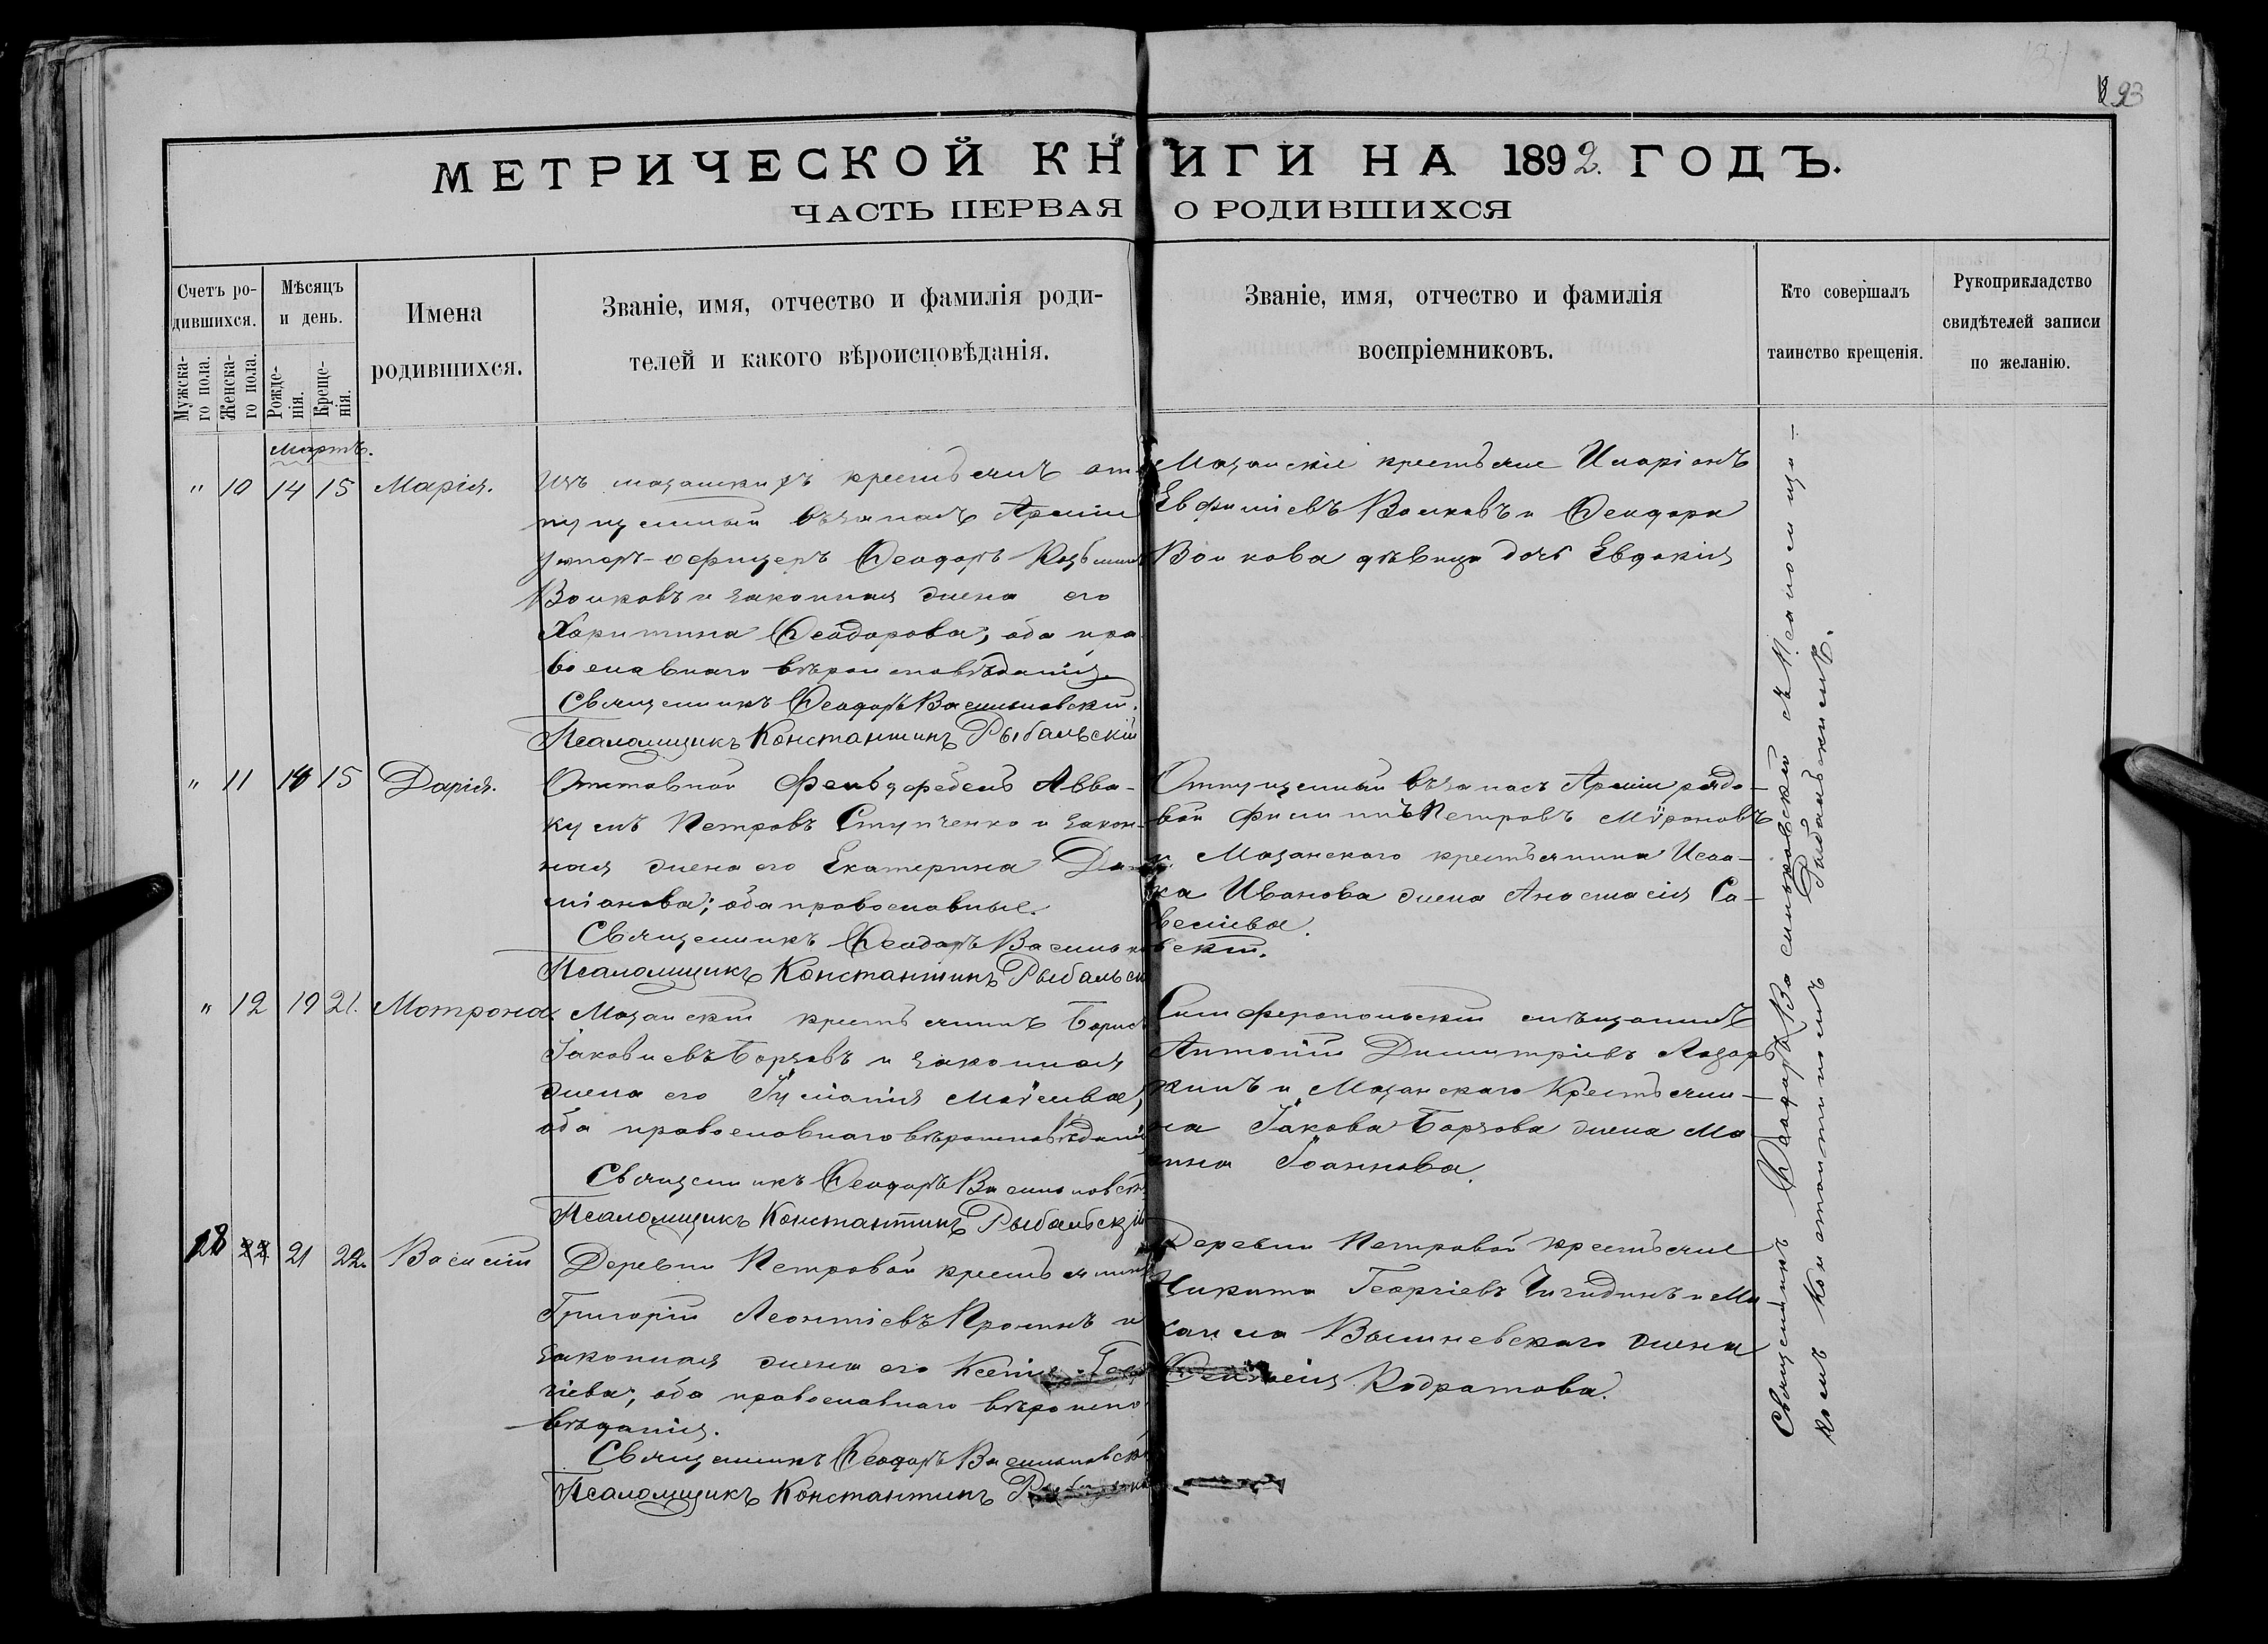 93
МЕТРИЧЕСКОЙ КНИГИ НА 1892. ГОДЪ.
ЧАСТЬ ПЕРВАЯ О РОДИВШИХСЯ
Счетъ ро-
дившихся.
Мужска-
го пола.
Женска-
го пола.
Мѣсяцъ
и день.
Рожде-
нія.
Креще-
нія.
Имена
родившихся.
Званіе, имя, отчество и фамилія роди-
телей и какого вѣроисповѣданія.
Званіе, имя, отчество и фамилія
воспріемниковъ.
Кто совершалъ
таинство крещенія.
Рукоприкладство
свидѣтелей записи
по желанію.
Мартъ.
" 10 14 15 Марія.
Изъ мазанскихъ крестьянъ от-
пущенный въ запасъ Арміи
унтеръ-офицеръ Ѳеодоръ Козьминъ
Волковъ и законная жена его
Харитина Ѳеодорова, оба пра-
вославнаго вѣроисповѣданія.
Священникъ Ѳеодоръ Васильковскій.
Псаломщикъ Константинъ Рыбальскій
Мазанскіе крестьяне Иларіонъ
Евфиміевъ Волковъ и Ѳеодора
Волкова дѣвица дочь Евдокія
" 11 14 15 Дарія.
Отставной фельдфебель Авва-
кумъ Петровъ Ступченко и закон-
ная жена его Екатерина Да-
міанова; оба православные.
Священникъ Ѳеодоръ Васильковскій.
Псаломщикъ Константинъ Рыбальск
Отпущенный въ запасъ Арміи рядо-
вой Филиппъ Петровъ Мѵроновъ
и Мазанскаго крестьянина Исаа-
ка Иванова жена Анастасія Са-
веліева.
" 12 19 21. Мотрона.
Мазанскій крестьянинъ Борисъ
Іаковлевъ Борзовъ и законная
жена его Іуліанія Моѵсеева,
оба православнаго вѣроисповѣданія
Священникъ Ѳеодоръ Васильковск
Псаломщикъ Константинъ Рыбальскій
Симферопольскій мѣщанинъ
Антоній Димитріевъ Лазарь
кинъ и Мазанскаго Крестьяни-
на Іакова Борзова жена Ма-
рина Іоаннова.
18 21 22. Василій
Деревни Петровой крестьянинъ
Григорій Леонтіевъ Пронинъ и
законная жена его Ксенія Геор
гіева; оба православнаго вѣроиспо
вѣданія.
Священникъ Ѳеодоръ Васильковск
Псаломщикъ Константинъ
Деревни Петровой крестьяне
Никита Георгіевъ Чигидинъ и Ми
хаила Вышневскаго жена
Кодратова.
Священникъ Ѳеодоръ Васильковскій съ Псаломщи-
комъ Константиномъ Рыбальскимъ.